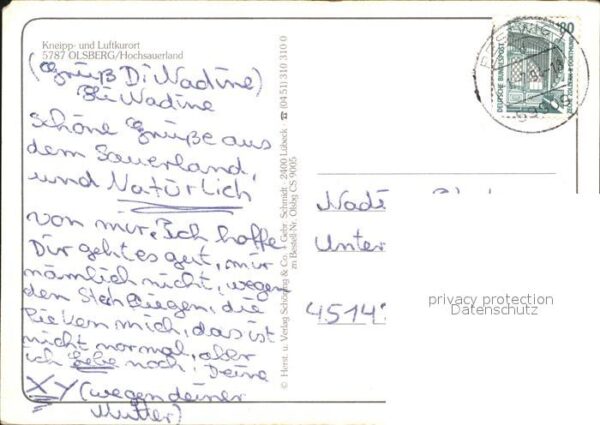 Kneipp- und Luftkurort
5787 OLSBERG/Hochsauerland
(Gruß Di Nadine)
Hi Nadine
schöne Grüße aus
dem Sauerland,
und Natürlich
von mir. Ich hoffe
Dir geht es gut, mir
nämlich nicht, wegen
den Stechfliegen, die
lieben mich, das ist
nicht normal, aber
ich lebe noch! Deine
XY (wegen deiner
Mutter)
© Herst. u. Verlag Schöning & Co. + Gebr. Schmidt · 2400 Lübeck ☎ (04 51) 310 310 0
zu Bestell-Nr. Olsbg CS 9005
80
DEUTSCHE BUNDESPOST
ZECHE ZOLLERN II DORTMUND
Unter
4514
privacy protection
Datenschutz